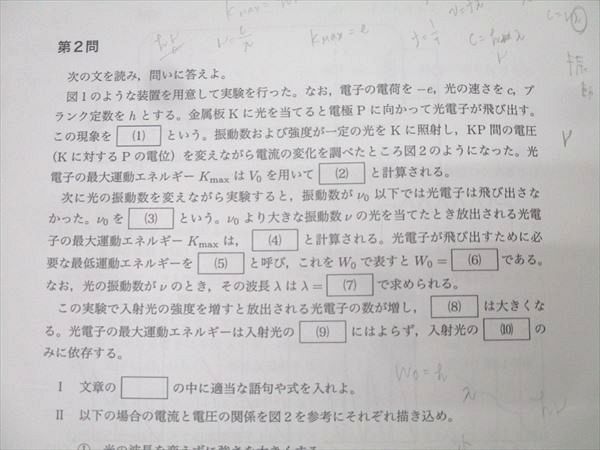 Kmax =
ν = c/λ
Kmax = e
第2問
次の文を読み，問いに答えよ。
図1のような装置を用意して実験を行った。なお，電子の電荷を −e，光の速さを c，プ
ランク定数を h とする。金属板 K に光を当てると電極 P に向かって光電子が飛び出す。
この現象を (1) という。振動数および強度が一定の光を K に照射し，KP 間の電圧
（K に対する P の電位）を変えながら電流の変化を調べたところ図2のようになった。光
電子の最大運動エネルギー Kmax は V0 を用いて (2) と計算される。
次に光の振動数を変えながら実験すると，振動数が ν0 以下では光電子は飛び出さな
かった。ν0 を (3) という。ν0 より大きな振動数 ν の光を当てたとき放出される光電
子の最大運動エネルギー Kmax は， (4) と計算される。光電子が飛び出すために必
要な最低運動エネルギーを (5) と呼び，これを W0 で表すと W0 = (6) である。
なお，光の振動数が ν のとき，その波長 λ は λ = (7) で求められる。
この実験で入射光の強度を増すと放出される光電子の数が増し， (8) は大きくな
る。光電子の最大運動エネルギーは入射光の (9) にはよらず，入射光の (10) の
みに依存する。
W0 = h
I 文章の の中に適当な語句や式を入れよ。
λ
hν
II 以下の場合の電流と電圧の関係を図2を参考にそれぞれ描き込め。
① 光の波長を変えずに強さを大きくする